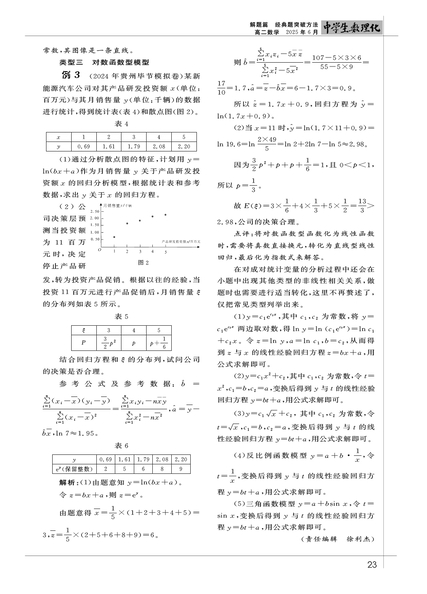 解题篇 经典题突破方法
高二数学 2025年6月
中学生数理化
常数,其图像是一条直线。
类型三 对数函数型模型
例3 (2024年贵州毕节模拟卷)某新
能源汽车公司对其产品研发投资额x(单位:
百万元)与其月销售量y(单位:千辆)的数据
进行统计,得到统计表(表4)和散点图(图2)。
表4
x 1 2 3 4 5
y 0.69 1.61 1.79 2.08 2.20
(1)通过分析散点图的特征,计划用y=
ln(bx+a)作为月销售量y关于产品研发投
资额x的回归分析模型,根据统计表和参考
数据,求出y关于x的回归方程。
(2)公
司决策层预
测当投资额
为11百万
元时,决定
停止产品研
图2
发,转为投资产品促销。根据以往的经验,当
投资11百万元进行产品促销后,月销售量ξ
的分布列如表5所示。
表5
ξ 3 4 5
P 3/2 p² p p+1/6
结合回归方程和ξ的分布列,试问公司
的决策是否合理。
参考公式及参考数据:b̂=
∑(xᵢ-x̄)(yᵢ-ȳ)/∑(xᵢ-x̄)²=∑xᵢyᵢ-nx̄ȳ/∑xᵢ²-nx̄²,â=ȳ-
b̂x̄,ln 7≈1.95。
表6
y 0.69 1.61 1.79 2.08 2.20
eʸ(保留整数) 2 5 6 8 9
解析:(1)由题意知y=ln(bx+a)。
令z=bx+a,则z=eʸ。
由题意得x̄=1/5×(1+2+3+4+5)=
3,z̄=1/5×(2+5+6+8+9)=6。
则b̂=∑xᵢzᵢ-5x̄z̄/∑xᵢ²-5x̄²=107-5×3×6/55-5×9=
17/10=1.7,â=z̄-b̂x̄=6-1.7×3=0.9。
所以ẑ=1.7x+0.9,回归方程为ŷ=
ln(1.7x+0.9)。
(2)当x=11时,ŷ=ln(1.7×11+0.9)=
ln 19.6=ln 2×49/5=ln 2+2ln 7-ln 5≈2.98。
因为3/2 p²+p+p+1/6=1,且0<p<1,
所以p=1/3。
故E(ξ)=3×1/6+4×1/3+5×1/2=13/3>
2.98,公司的决策合理。
点评:将对数函数型函数化为线性函数
时,需要将真数直接换元,转化为直线型线性
回归,最后化为指数式来解答。
在对成对统计变量的分析过程中还会在
小题中出现其他类型的非线性相关关系,做
题时也需要进行适当转化,这里不再赘述了,
仅把常见类型列举出来。
(1)y=c₁e^(c₂x),其中c₁,c₂为常数,将y=
c₁e^(c₂x)两边取对数,得ln y=ln(c₁e^(c₂x))=ln c₁
+c₂x。令z=ln y,a=ln c₁,b=c₂,从而得
到z与x的线性经验回归方程z=bx+a,用
公式求解即可。
(2)y=c₁x²+c₂,其中c₁,c₂为常数,令t=
x²,c₁=b,c₂=a,变换后得到y与t的线性经验
回归方程y=bt+a,用公式求解即可。
(3)y=c₁√x+c₂,其中c₁,c₂为常数,令
t=√x,c₁=b,c₂=a,变换后得到y与t的线
性经验回归方程y=bt+a,用公式求解即可。
(4)反比例函数模型y=a+b·1/x,令
t=1/x,变换后得到y与t的线性经验回归方
程y=bt+a,用公式求解即可。
(5)三角函数模型y=a+bsin x,令t=
sin x,变换后得到y与t的线性经验回归方
程y=bt+a,用公式求解即可。
(责任编辑 徐利杰)
23